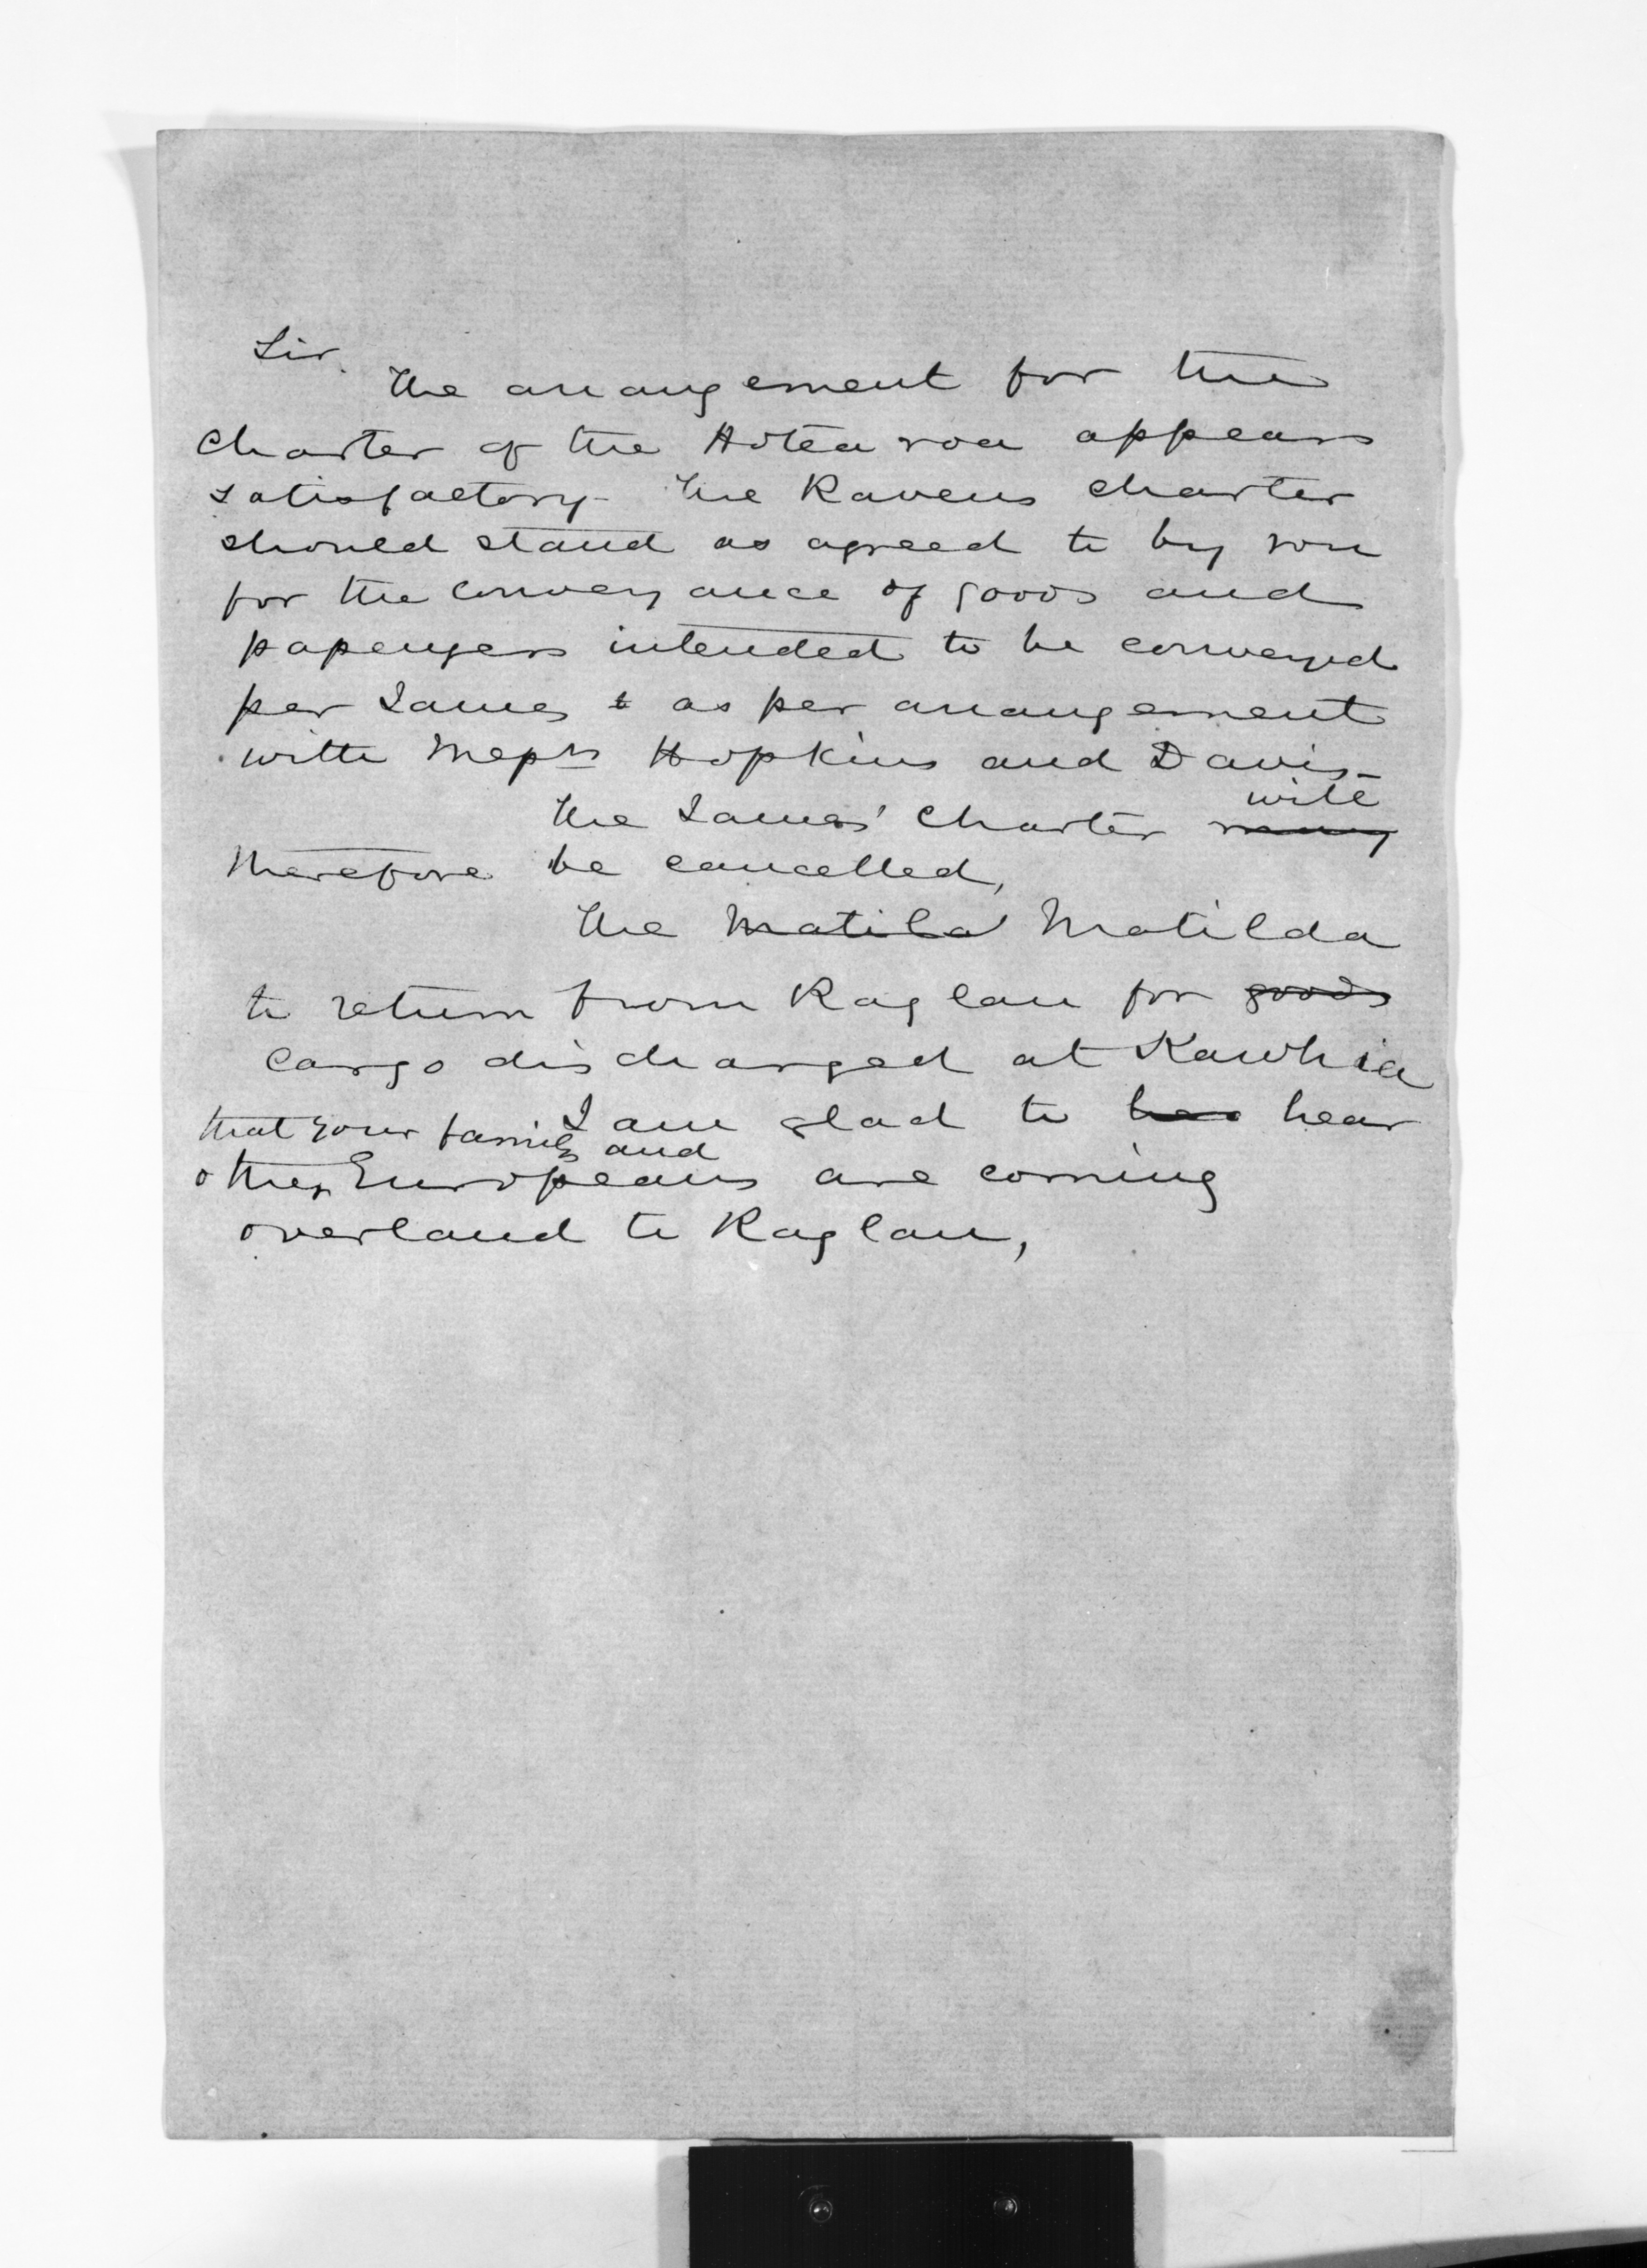 Sir.
The arrangement for the
charter of the Aotearoa appears
satisfactory - The Ravens charter
should stand as agreed to by you
for the conveyance of goods and
passengers intended to be conveyed
per James & as per arrangement
with Messrs Hopkins and Davis -
will
The James' charter may
therefore be cancelled,
The Matila Matilda
to return from Raglan for goods
cargo discharged at Kawhia
I am glad to hea hear
that your family and
other Europeans are coming
overland to Raglan,